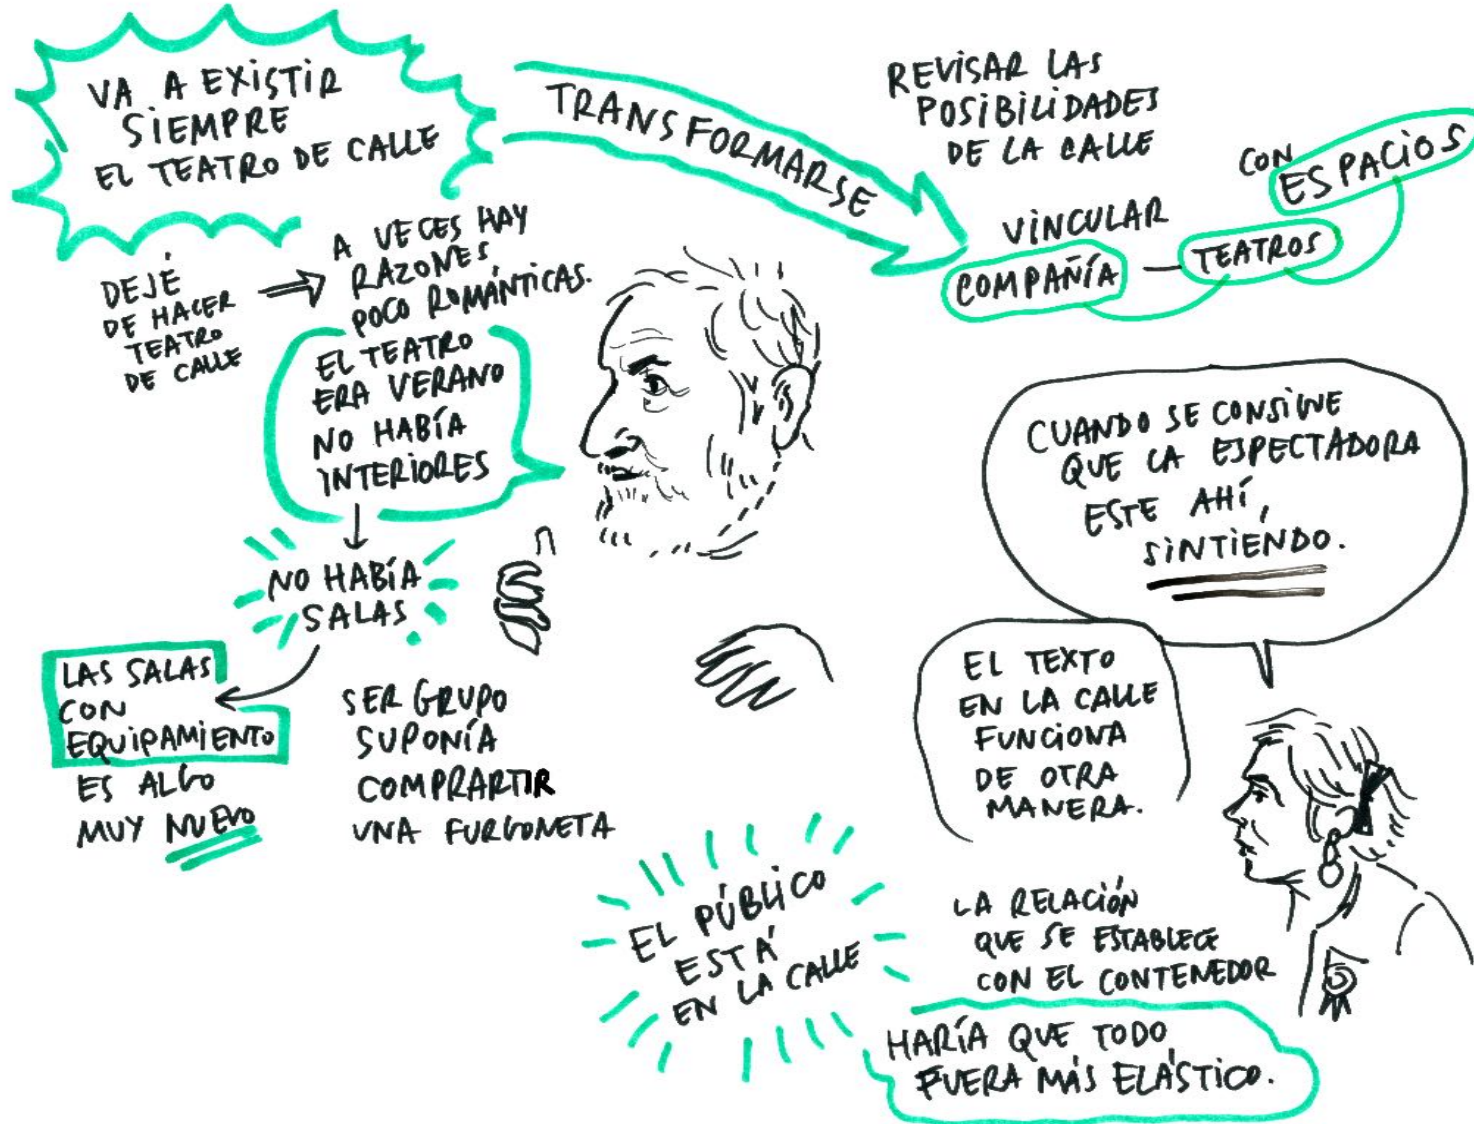 VA A EXISTIR
SIEMPRE
EL TEATRO DE CALLE
TRANSFORMARSE
REVISAR LAS
POSIBILIDADES
DE LA CALLE
VINCULAR
COMPAÑÍA — TEATROS
CON
ESPACIOS
DEJÉ
DE HACER
TEATRO
DE CALLE
A VECES HAY
RAZONES
POCO ROMÁNTICAS.
EL TEATRO
ERA VERANO
NO HABÍA
INTERIORES
NO HABÍA
SALAS
LAS SALAS
CON
EQUIPAMIENTO
ES ALGO
MUY NUEVO
SER GRUPO
SUPONÍA
COMPRARTIR
UNA FURGONETA
CUANDO SE CONSIGUE
QUE LA ESPECTADORA
ESTE AHÍ,
SINTIENDO.
EL TEXTO
EN LA CALLE
FUNCIONA
DE OTRA
MANERA.
EL PÚBLICO
ESTÁ
EN LA CALLE
LA RELACIÓN
QUE SE ESTABLECE
CON EL CONTENEDOR
HARÍA QUE TODO
FUERA MÁS ELÁSTICO.